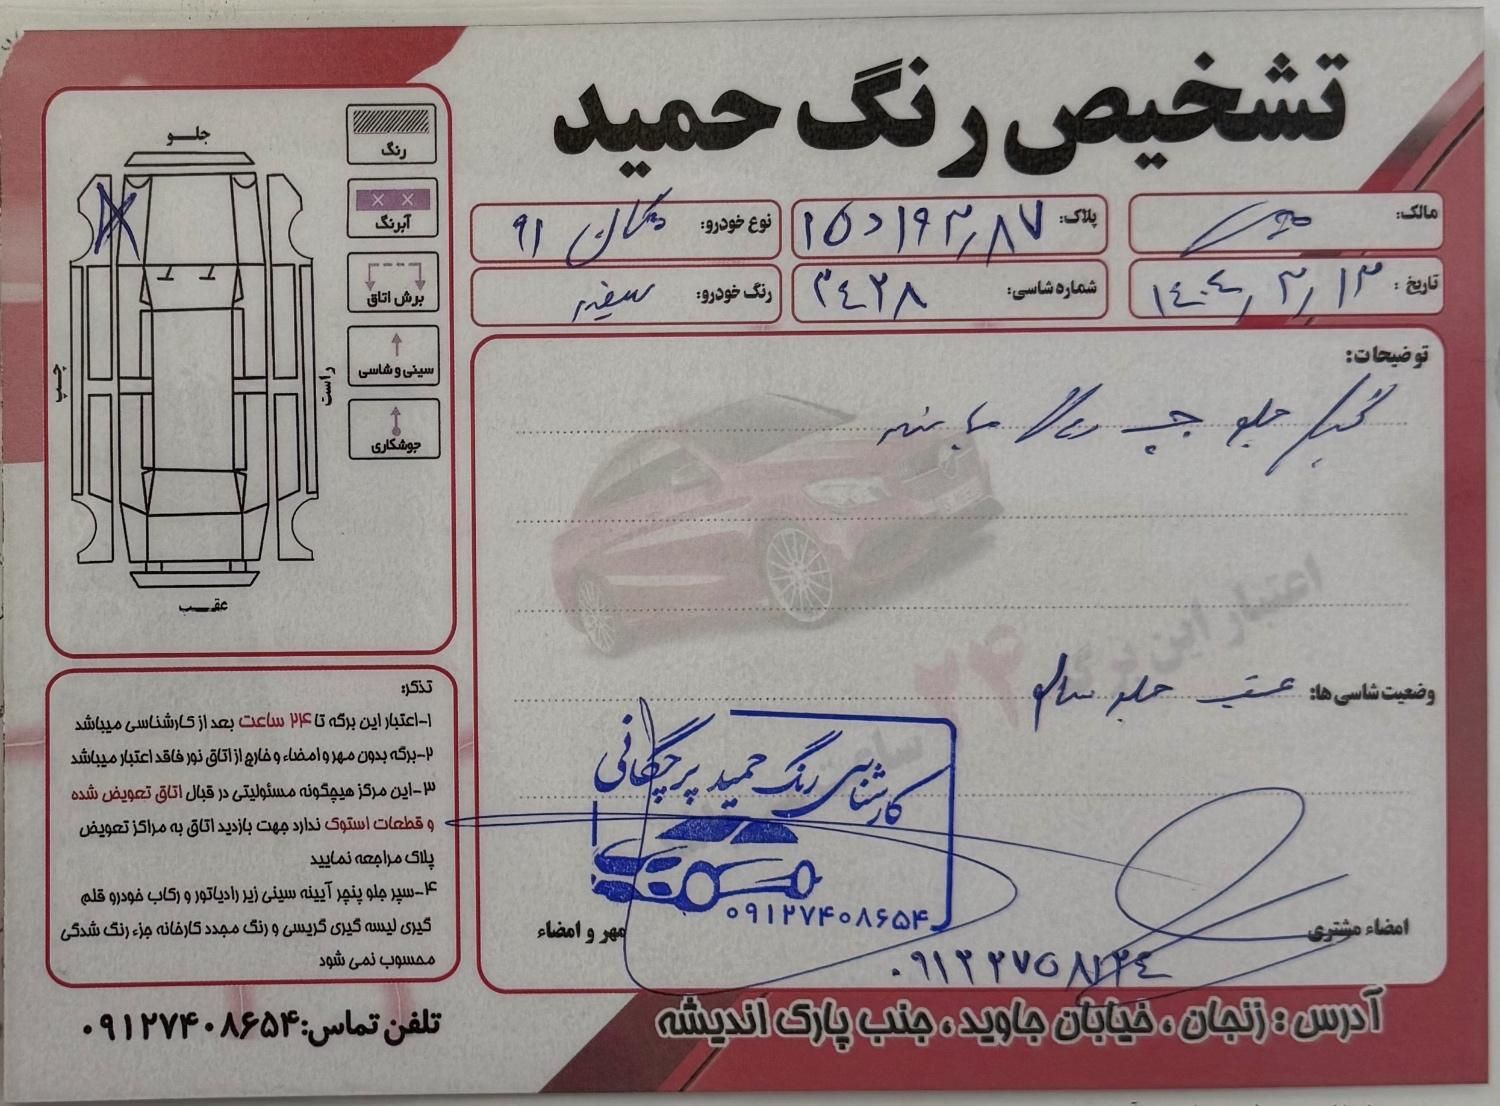 تشخیص رنگ حمید
مالک:
پلاک: ۱۵ د ۱۹۳ / ۸۷
نوع خودرو: مگان ۹۱
تاریخ: ۱۴۰۴/۳/۱۳
شماره شاسی: ۳۴۲۸
رنگ خودرو: سفید
توضیحات:
گلگیر جلو چپ رنگ میباشد
اعتبار این برگه ۲۴ ساعت
وضعیت شاسی ها: عقب جلو سالم
کارشناسی رنگ حمید پرچگانی
۰۹۱۲۷۴۰۸۶۵۴
مهر و امضاء
امضاء مشتری
آدرس: زنجان، خیابان جاوید، جنب پارک اندیشه
جلو
چپ
راست
عقب
رنگ
آبرنگ
برش اتاق
سینی و شاسی
جوشکاری
تذکر:
۱-اعتبار این برگه تا ۲۴ ساعت بعد از کارشناسی میباشد
۲-برگه بدون مهر و امضاء و خارج از اتاق نور فاقد اعتبار میباشد
۳-این مرکز هیچگونه مسئولیتی در قبال اتاق تعویض شده
و قطعات استوک ندارد جهت بازدید اتاق به مراکز تعویض
پلاک مراجعه نمایید
۴-سپر جلو پنجر آیینه سینی زیر رادیاتور و رکاب خودرو قلم
گیری لیسه گیری گریسی و رنگ مجدد کارخانه جزء رنگ شدگی
محسوب نمی شود
تلفن تماس:۰۹۱۲۷۴۰۸۶۵۴